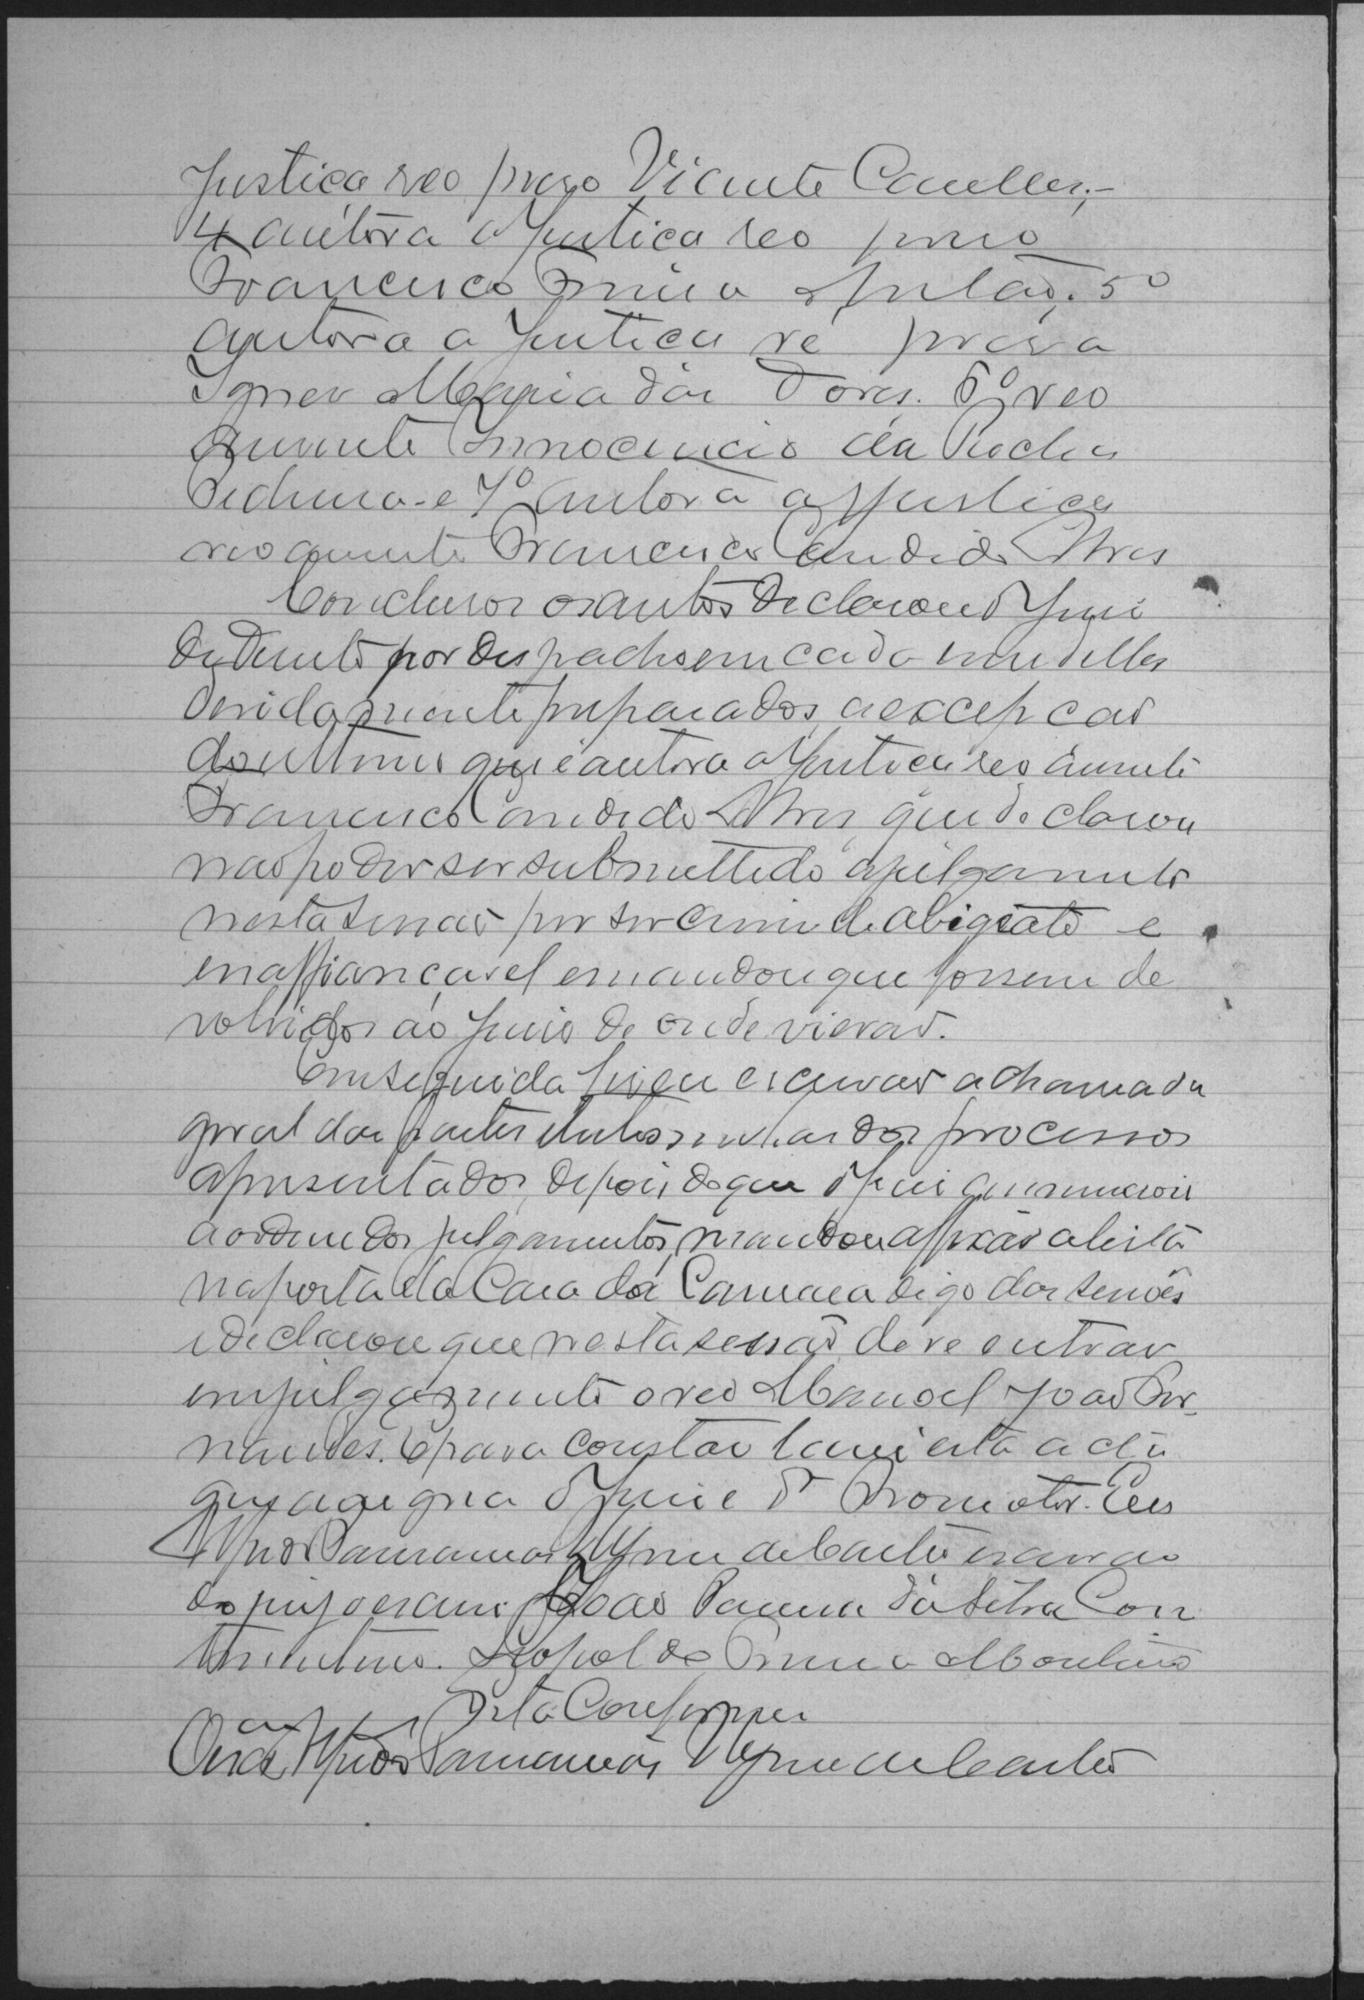 Justiça reo prezo Vicente Canelles;-
4 autôra a Justiça reo prezo
Francisco Julião. 5º
autôra a Justiça ré prêza
Ignez Maria das Dores. 6º reo
auzente Innocencio da Rocha
e 7º autôra a Justiça
reo auzente Francisco Candido Alves
Concluzos os autos declarou o Juiz
por despacho em cada um delles
devidamente preparados, a excepção
do ultimo que é autora a Justiça reo auzente
Francisco Candido Alves, que declarou
não poder ser submettido a julgamento
nesta sessão por ser crime de abigeato e
inaffiançavel e mandou que fossem de
volvidos ao Juizo de onde vierão.
Em seguida fiz eu escrivão a chamada
geral das partes e testemunhas dos processos
apresentados, depois do que o Juiz annunciou
a ordem dos julgamentos, mandou affixar a lista
na porta da Casa da Camara digo das sessões
e declarou que nesta sessão deve entrar
em julgamento o reo Manoel João Fer-
nandes. E para constar lavrei esta acta
que assigna o Juiz e Dr Promotor. Eu
de Castro escrivão
do jury o escrevi João da Silva Con
Leopoldo
Está Conforme
de Castro